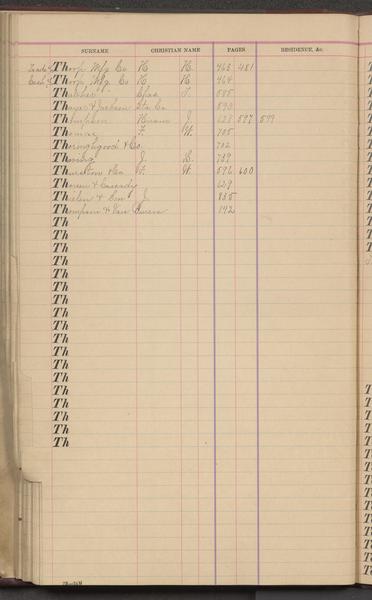 SURNAME CHRISTIAN NAME PAGES RESIDENCE, &c.
Thorp Mfg Co H H. 463 481
Thorp Mfg Co H H. 464
Thatcher Chas T. 585
Thayer & Jackson Sta Co. 590
Thompson Hiram J. 597 599
Thomas F. W. 705
Thoroughgood & Co. 702
J.
Thurston & Co F. W. 596 600
Thorsen & Cassady 629
Thielen & Son J. 835
Thompson & Van 192
Th
Th
Th
Th
Th
Th
Th
Th
Th
Th
Th
Th
Th
Th
Th
Th
Th
Th